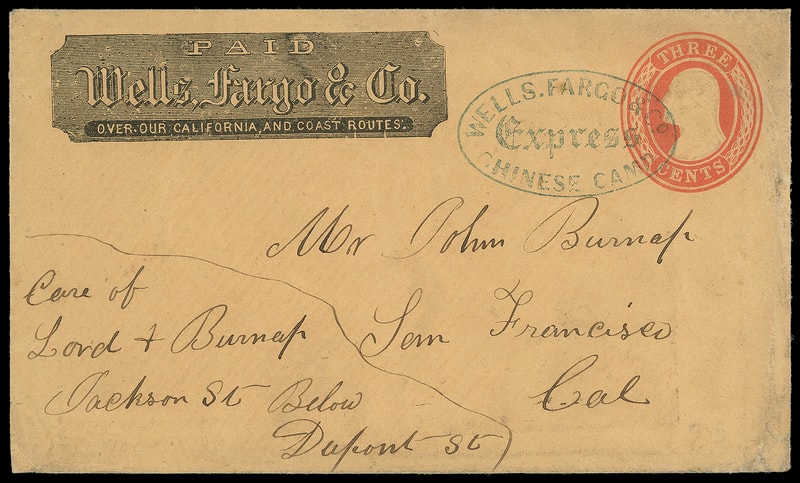 PAID
Wells, Fargo & Co.
OVER.OUR CALIFORNIA, AND COAST ROUTES.
WELLS. FARGO & Co
Express
CHINESE CAMP
THREE
CENTS
Mr John Burnap
San Francisco
Cal
Care of
Lord & Burnap
Jackson St Below
Dupont St